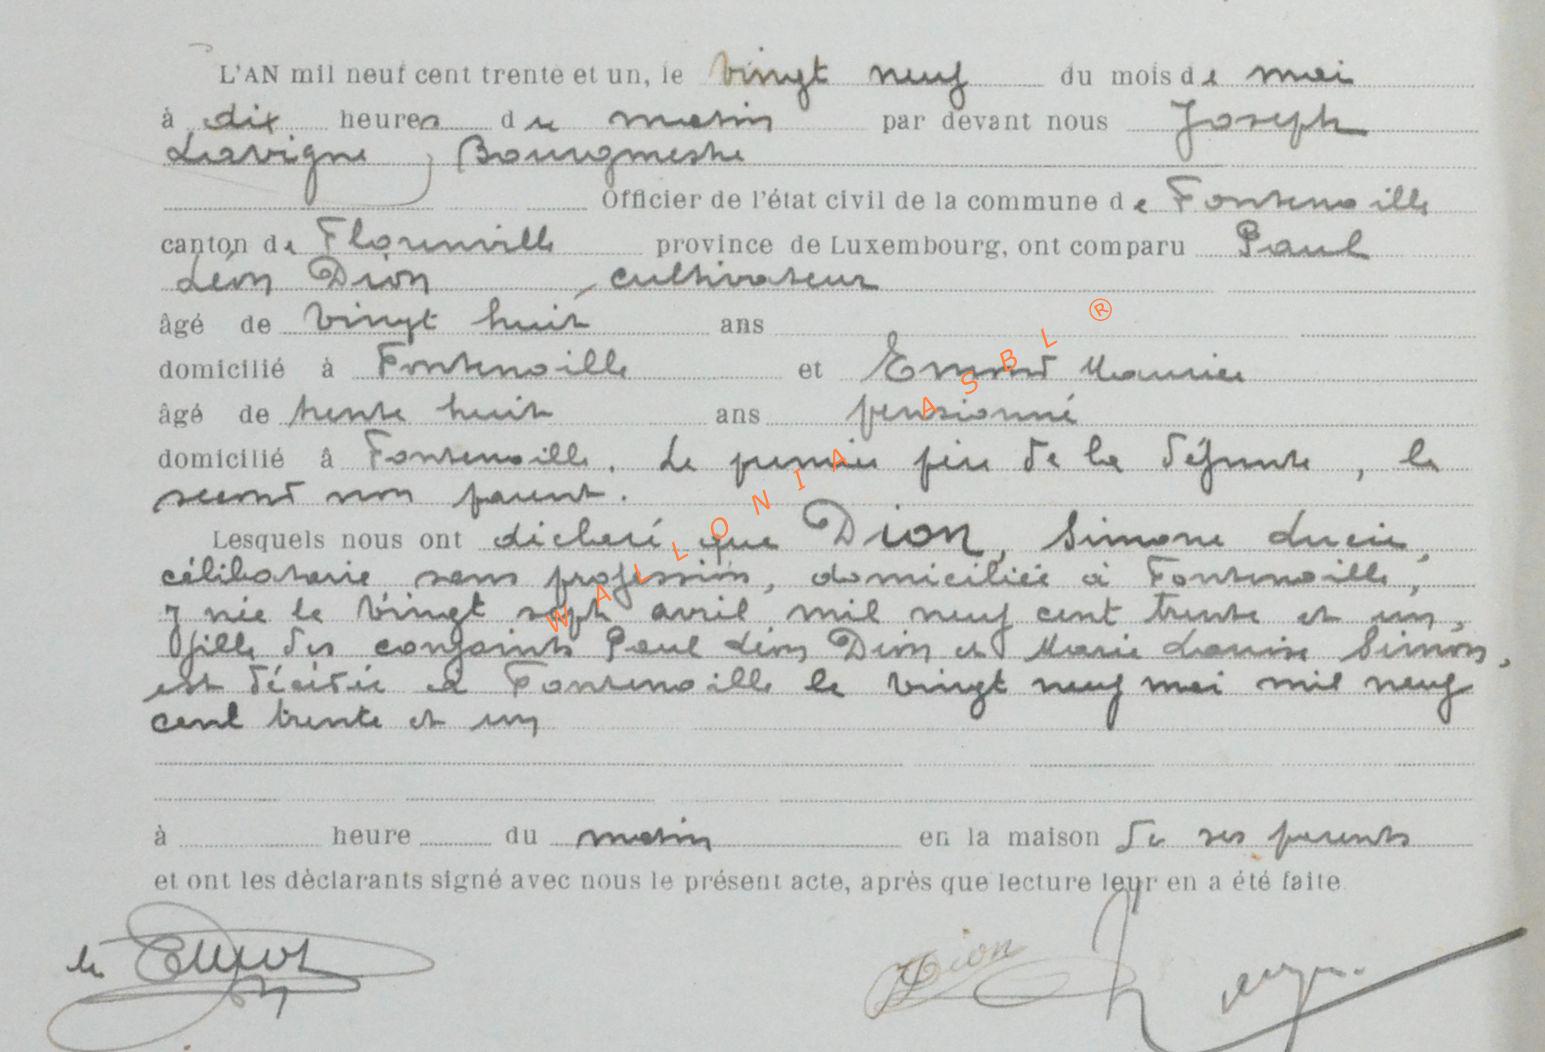 L'AN mil neuf cent trente et un, le vingt neuf du mois de mai
à dix heures du matin par devant nous Joseph
Lavigne, Bourgmestre
Officier de l'état civil de la commune de Fontenoille
canton de Florenville province de Luxembourg, ont comparu Paul
Léon Dion, cultivateur
âgé de vingt huit ans
domicilié à Fontenoille et Emond Maurice
âgé de trente huit ans pensionné
domicilié à Fontenoille. Le premier père de la défunte, le
second non parent.
Lesquels nous ont déclaré que Dion, Simone Lucie,
célibataire sans profession, domiciliée à Fontenoille,
y née le vingt sept avril mil neuf cent trente et un,
fille des conjoints Paul Léon Dion et Marie Louise Simon,
est décédée à Fontenoille le vingt neuf mai mil neuf
cent trente et un
à heure du matin en la maison de ses parents
et ont les dèclarants signé avec nous le présent acte, après que lecture leur en a été faite
Dion
WALLONIA ASBL ®